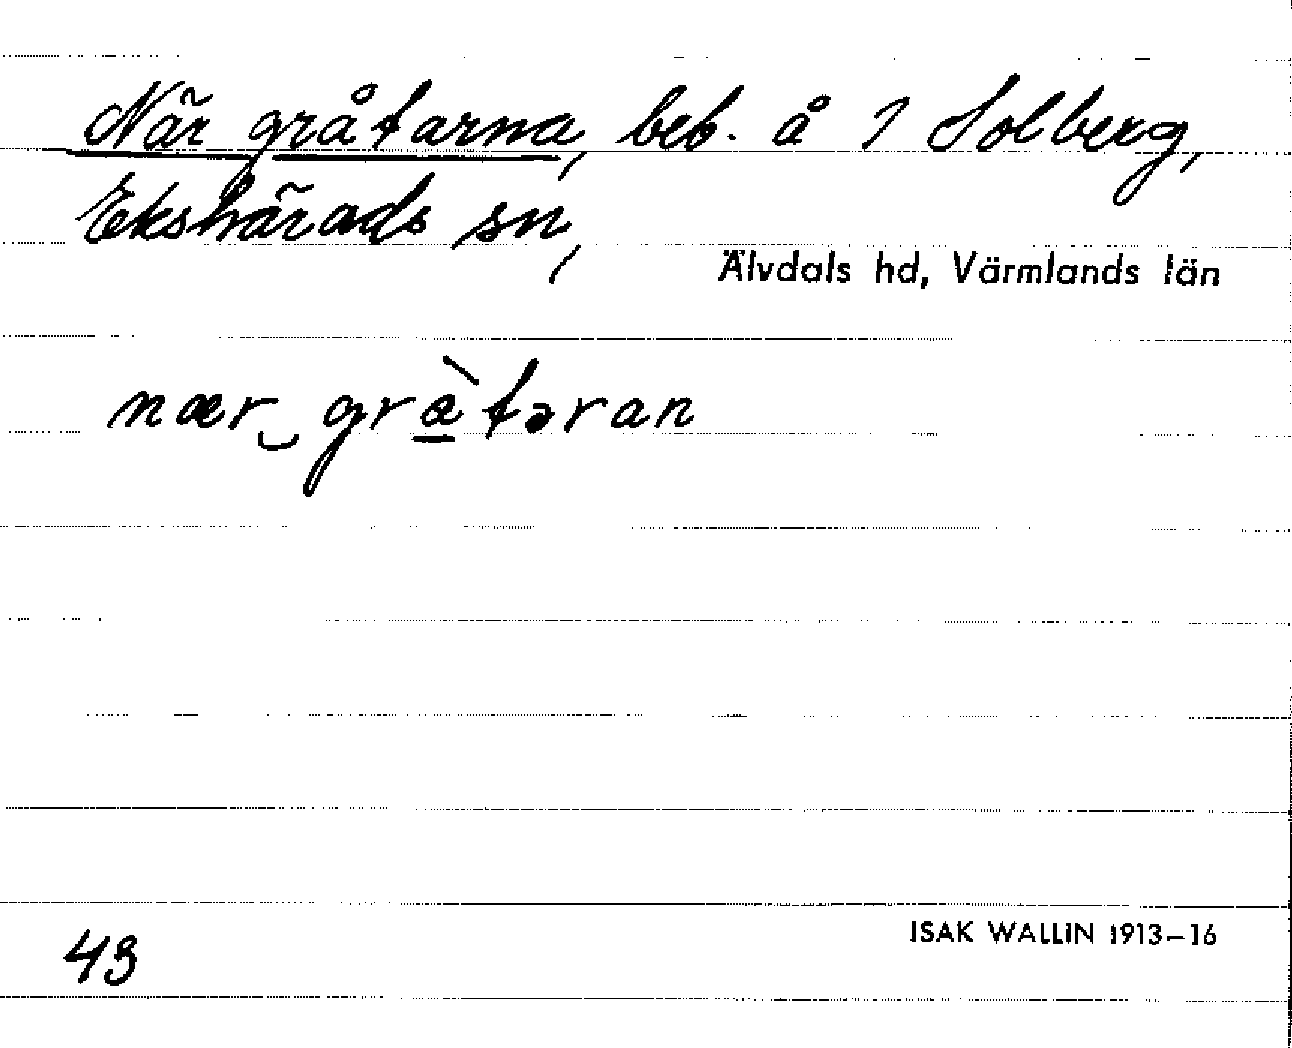 När gråtarna, beb. å 1 Solberg,
Ekshärads sn,
Älvdals hd, Värmlands län
nær‿grà̱təran
ISAK WALLIN 1913–16
43